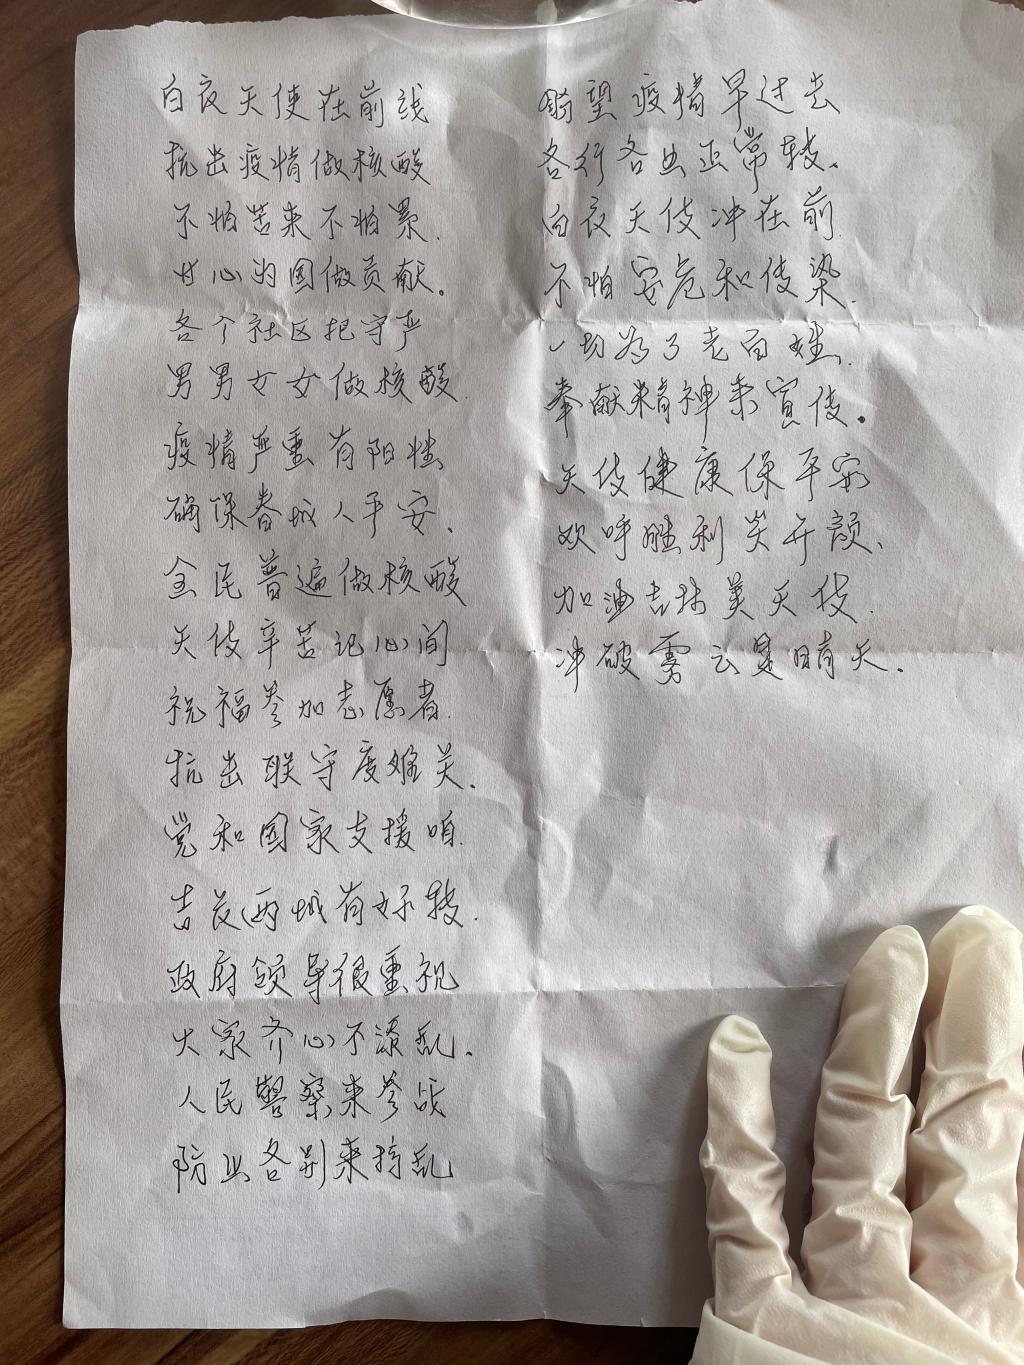 白夜天使在前线
抗击疫情做核酸
不怕苦来不怕累.
甘心为国做贡献。
各个社区把守严
男男女女做核酸
疫情严重有阳性
确保春城人平安、
全民普遍做核酸
天使辛苦记心间
祝福参加志愿者
抗击联守度难关.
党和国家支援咱
吉长两城有好转.
政府领导很重视
大家齐心不添乱.
人民警察来参战
防止各别来捣乱
盼望疫情早过去
各行各业正常转.
白夜天使冲在前
不怕安危和传染.
一切为了老百姓、
奉献精神来宣传。
天使健康保平安
欢呼胜利笑开颜、
加油吉林美天使.
冲破雾云是晴天.